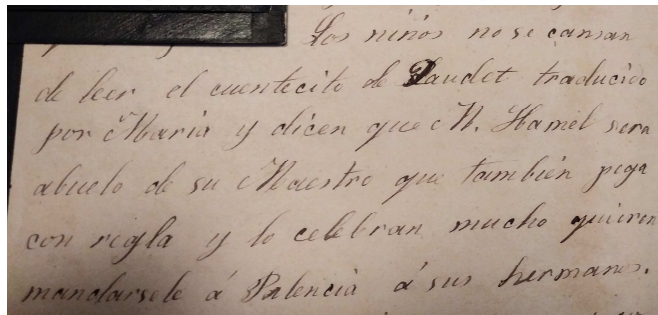 Los niños no se cansan
de leer el cuentecito de Daudet traducido
por Maria y dicen que M. Hamel sera
abuelo de su Maestro que también pega
con regla y lo celebran mucho quieren
mandarsele á Palencia á sus hermanos.